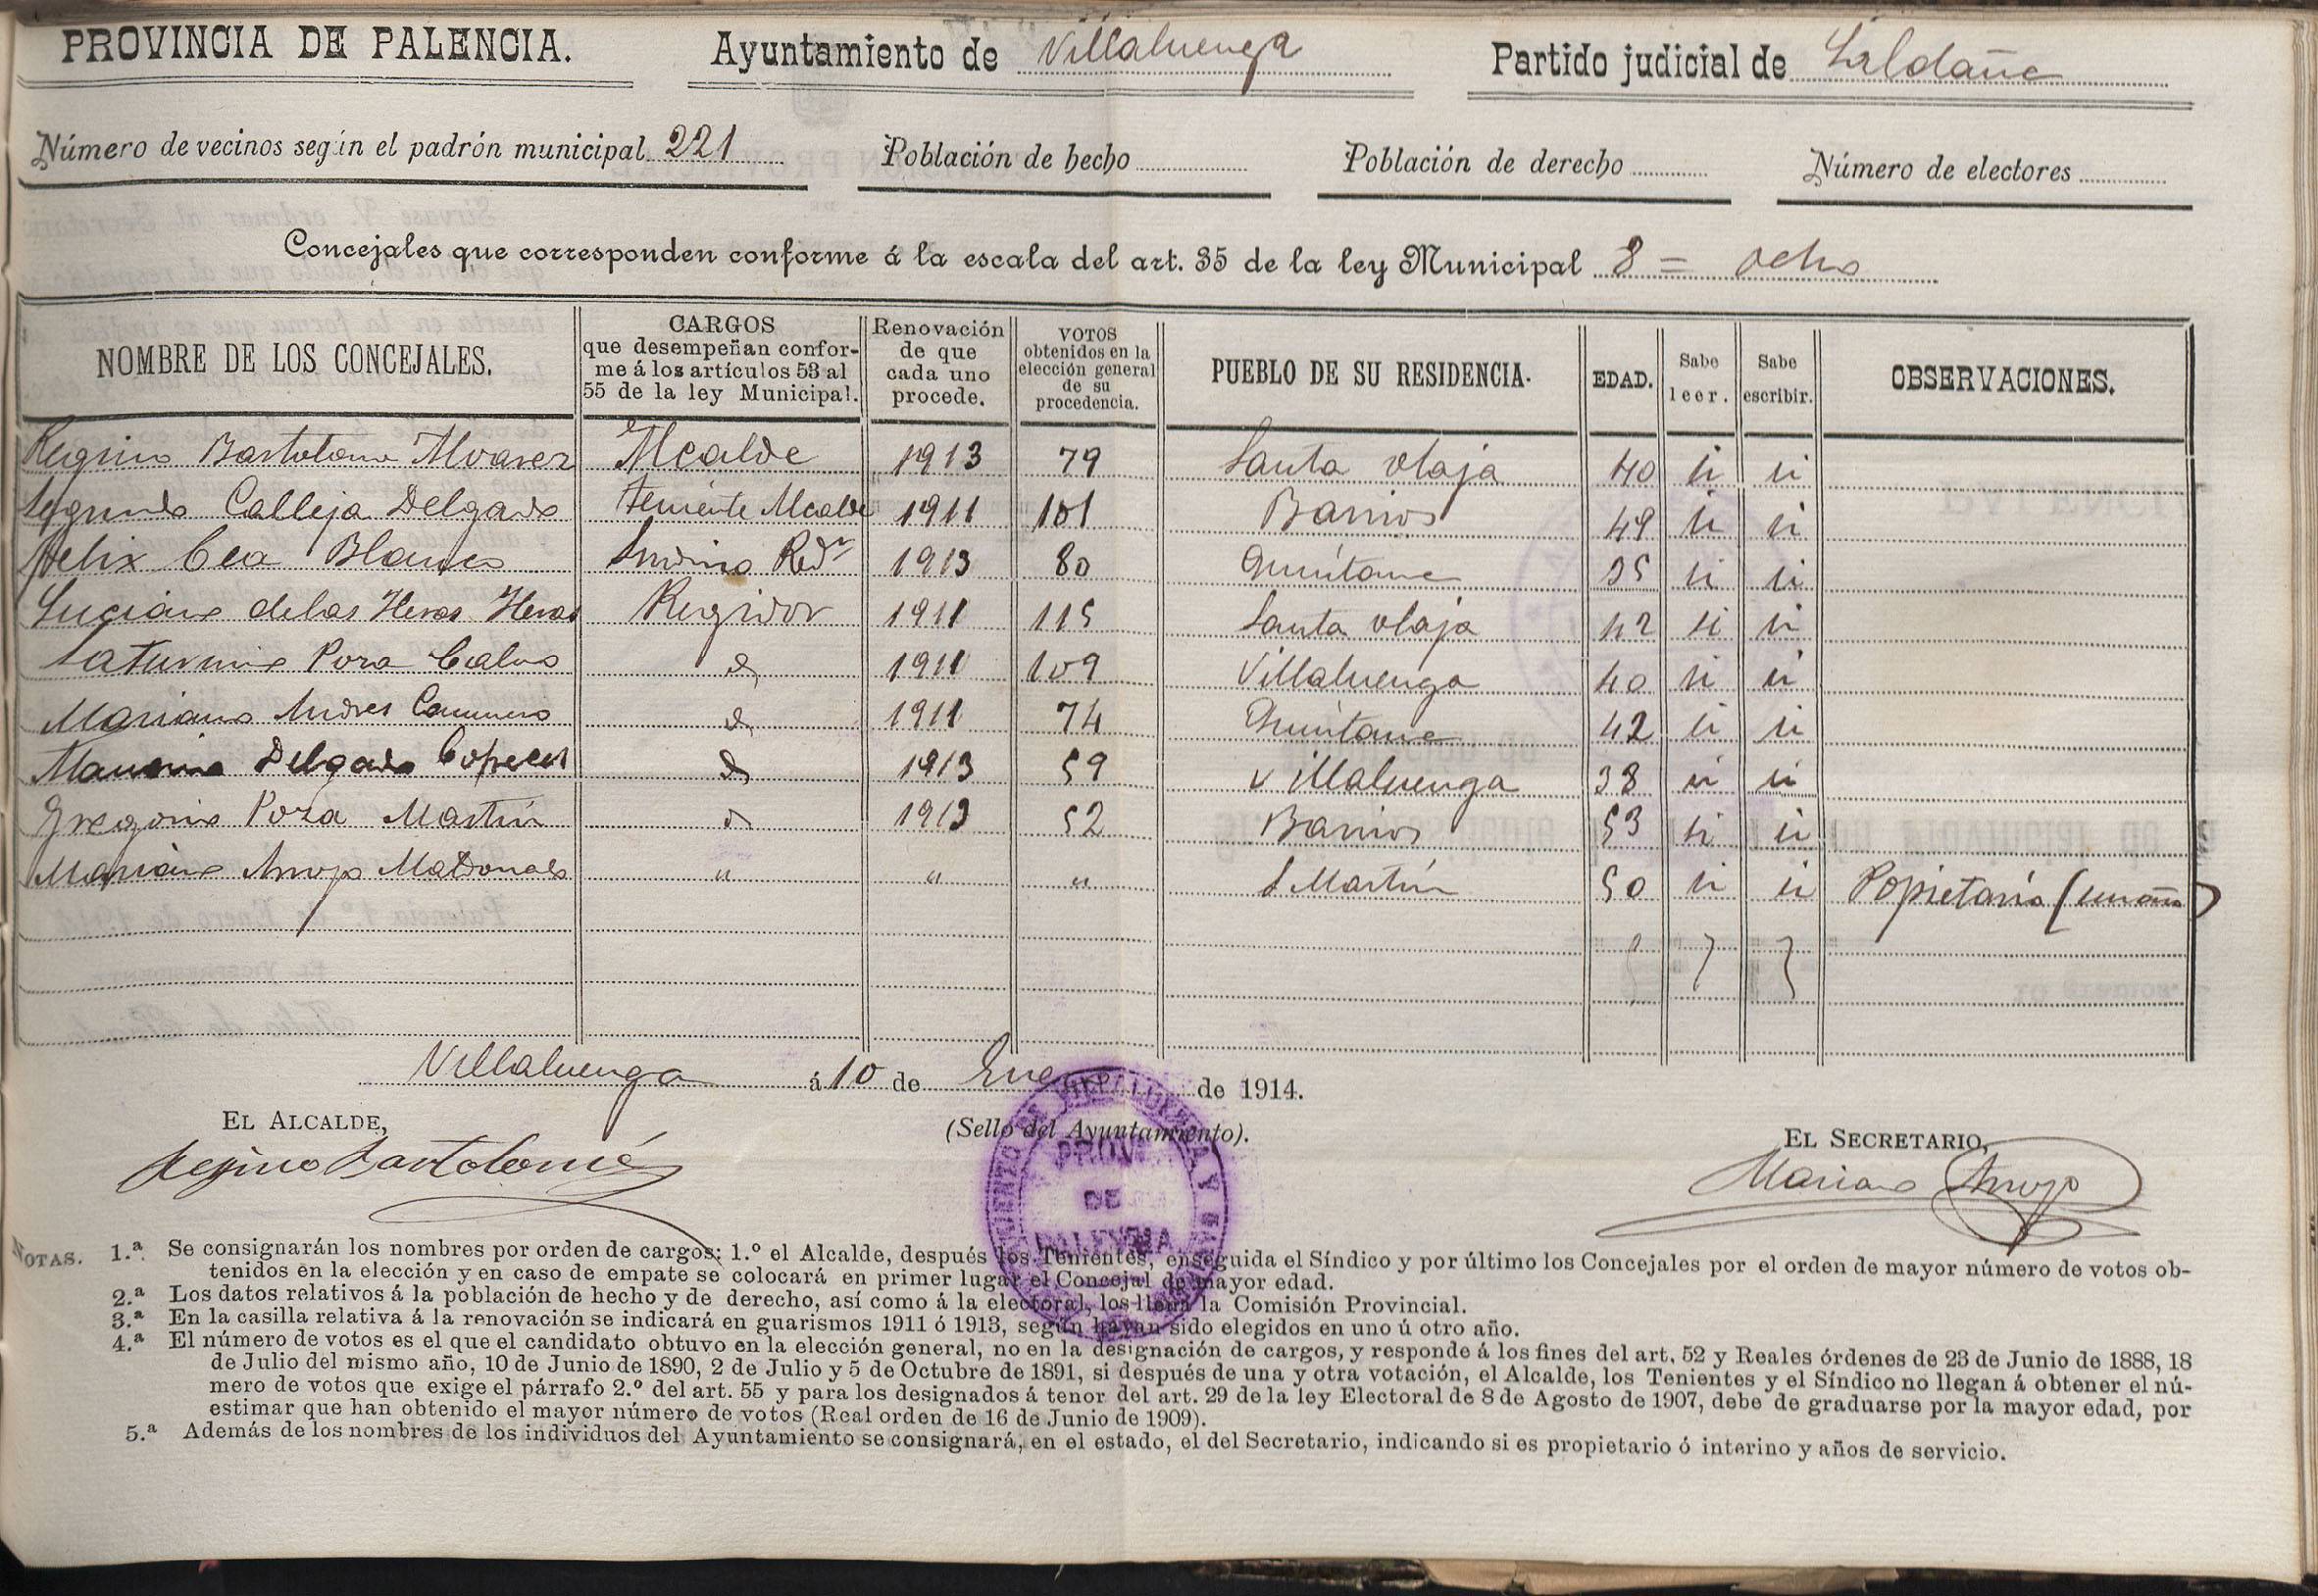 PROVINCIA DE PALENCIA. Ayuntamiento de Villaluenga Partido judicial de Saldaña
Número de vecinos según el padrón municipal 221 Población de hecho Población de derecho Número de electores
Concejales que corresponden conforme á la escala del art. 35 de la ley Municipal 8 = ocho
NOMBRE DE LOS CONCEJALES. CARGOS que desempeñan conforme á los artículos 53 al 55 de la ley Municipal. Renovación de que cada uno procede. VOTOS obtenidos en la elección general de su procedencia. PUEBLO DE SU RESIDENCIA. EDAD. Sabe leer. Sabe escribir. OBSERVACIONES.
Regino Bartolome Alvarez Alcalde 1913 79 Santa olaja 40 si si
Segundo Calleja Delgado Teniente Alcalde 1911 101 Barrios 49 si si
Felix Cea Blanco Sindico Redr 1913 80 Quintana 35 si si
Luciano de las Heras Heras Regidor 1911 115 Santa olaja 42 si si
Saturnino Poza Calvo d 1911 109 Villaluenga 40 si si
Mariano Andres Caminero d 1911 74 Quintana 42 si si
Delgado d 1913 59 villaluenga 38 si si
Gregorio Poza Martin d 1913 52 Barrios 53 si si
Mariano Arroyo Maldonado " " " S Martin 50 si si Popietario (un año)
Villaluenga á 10 de Enero de 1914.
EL ALCALDE, (Sello del Ayuntamiento). EL SECRETARIO,
Regino Bartolomé Mariano Arroyo
PROVª
DE
PALENCIA
NOTAS. 1.ª Se consignarán los nombres por orden de cargos: 1.º el Alcalde, después los Tenientes, enseguida el Síndico y por último los Concejales por el orden de mayor número de votos ob-
tenidos en la elección y en caso de empate se colocará en primer lugar el Concejal de mayor edad.
2.ª Los datos relativos á la población de hecho y de derecho, así como á la electoral, los llena la Comisión Provincial.
3.ª En la casilla relativa á la renovación se indicará en guarismos 1911 ó 1913, según hayan sido elegidos en uno ú otro año.
4.ª El número de votos es el que el candidato obtuvo en la elección general, no en la designación de cargos, y responde á los fines del art. 52 y Reales órdenes de 23 de Junio de 1888, 18
de Julio del mismo año, 10 de Junio de 1890, 2 de Julio y 5 de Octubre de 1891, si después de una y otra votación, el Alcalde, los Tenientes y el Síndico no llegan á obtener el nú-
mero de votos que exige el párrafo 2.º del art. 55 y para los designados á tenor del art. 29 de la ley Electoral de 8 de Agosto de 1907, debe de graduarse por la mayor edad, por
estimar que han obtenido el mayor número de votos (Real orden de 16 de Junio de 1909).
5.ª Además de los nombres de los individuos del Ayuntamiento se consignará, en el estado, el del Secretario, indicando si es propietario ó interino y años de servicio.